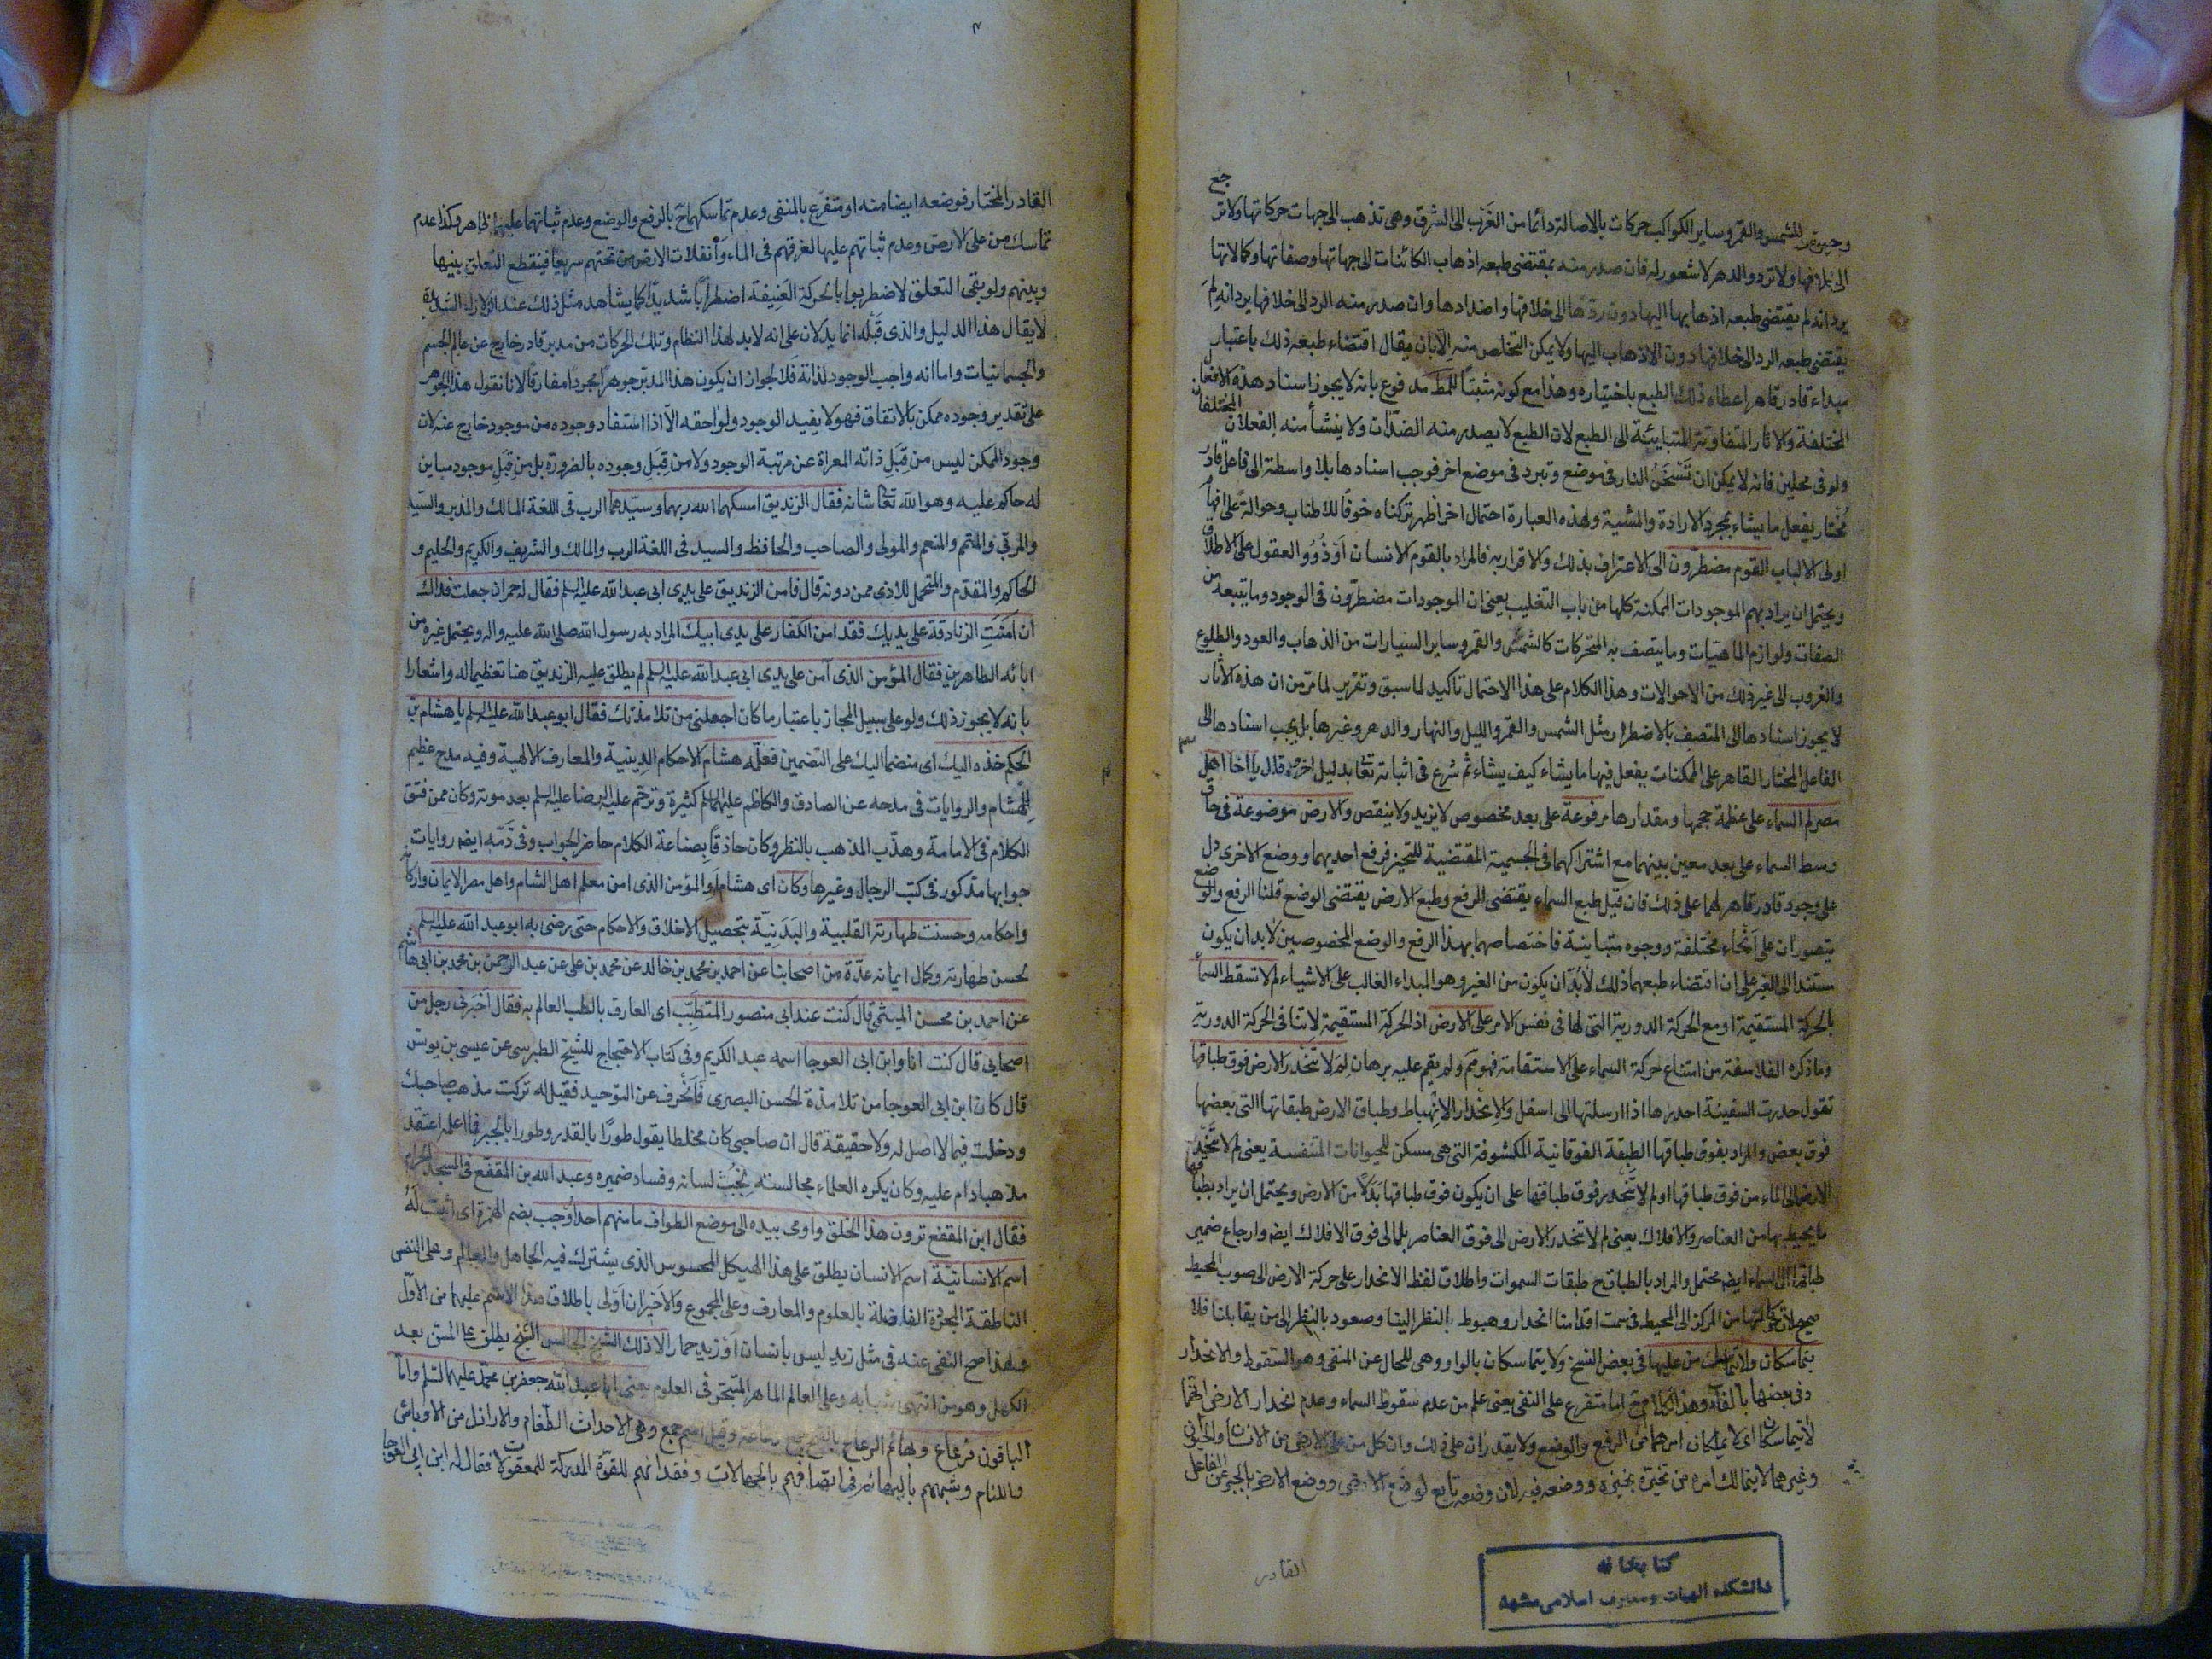 وجموع للشمس والقمر وساير الكواكب حركات بالاصالة دائما من الغرب الى الشرق وهى تذهب الى جهات حركاتها ولا تر
جع
الى خلافها ولا ترد والدهر لا شعور له فان صدر منه بمقتضى طبعه اذهاب الكائنات الى جهاتها وصفاتها وكمالاتها
يرد انه لم يقتضى طبعه اذهابها اليها دون ردّها الى خلافها واضدادها وان صدر منه الرد الى خلافها يرد انه لِمَ
يقتضى طبعه الرد الى خلافها دون الاذهاب اليها ولا يمكن التخلص منه الّا بان يقال اقتضاء طبعه ذلك باعتبار
مبداء قادر قاهر اعطاه ذلك الطبع باختياره وهذا مع كونه مثبتًا للمط مدفوع بانه لا يجوز اسناد هذه الافعال
المختلفة والاثار المتفاوتة المتباينة الى الطبع لان الطبع لا يصدر منه الضدّان ولا ينشأ منه الفعلان المختلفان
ولو فى محلين فانه لا يمكن ان تَسْخَنَ النار فى موضع وتبرد فى موضع اخر فوجب اسنادها بلا واسطة الى فاعل قادر
مُختار يفعل ما يشاء بمجرد الارادة والمشية ولهذه العبارة احتمال اخر اظهر تركناه خوفًا للاطناب وحوالةً على افهام
اولى الالباب القوم مضطرّون الى الاعتراف بذلك والاقرار به فالمراد بالقوم الانسان اَوْ ذَوُو العقول على الاطلاق
ويحتمل ان يراد بهم الموجودات الممكنة كلها من باب التغليب يعنى ان الموجودات مضطرّون فى الوجود وما يتبعه من
الصفات ولوازم الماهيّات وما يتصف به المتحركات كالشمس والقمر وساير السيارات من الذهاب والعود والطلوع
والغروب الى غير ذلك من الاحوالات وهذا الكلام على هذا الاحتمال تاكيد لما سبق وتقرير لما مرّ من ان هذه الاثار
لا يجوز اسنادها الى المتصف بالاضطرار مثل الشمس والقمر والليل والنهار والدهر وغيرها بل يجب اسنادها الى
الفاعل المختار القاهر على الممكنات يفعل فيها ما يشاء كيف يشاء ثم شرع فى اثباته تعالى بدليل اخر قال يا اخا اهل
مصر لم السماء على عظمة حجمها ومقدارها مرفوعة على بعد مخصوص لا يزيد ولا ينقص والارض موضوعة فى حاق
وسط السماء على بعد معين بينهما مع اشتراكهما فى الجسمية المقتضية للتحيز فرفع احديهما ووضع الاخرى دل
على وجود قادر قاهر لهما على ذلك فان قيل طبع السماء يقتضى الرفع وطبع الارض يقتضى الوضع قلنا الرفع والوضع
يتصوران على اَنْحاء مختلفة ووجوه متباينة فاختصاصهما بهذا الرفع والوضع المخصوصين لا بد ان يكون
مستندا الى الغير على ان اقتضاء طبعهما ذلك لا بُدّ ان يكون من الغير وهو المبداء الغالب على الاشياء لم لا تسقط السماء
بالحركة المستقيمة او مع الحركة الدورية التى لها فى نفس الامر على الارض اذ الحركة المستقيمة لا تنافى الحركة الدورية
وما ذكره الفلاسفة من امتناع حركة السماء على الاستقامة فهو مم ولم يقم عليه برهان لِمَ لا تنحدر الارض فوق طباقها
تقول حدرت السفينة احدرها اذا ارسلتها الى اسفل والاِنحْدار الاِنْهباط وطباق الارض طبقاتها التى بعضها
فوق بعض والمراد بفوق طباقها الطبقة الفوقانية المكشوفة التى هى مسكن للحيوانات المتنفسة يعنى لم لا تنحدر
الارض الى الماء من فوق طباقها او لم لا تنحدر فوق طباقها على ان يكون فوق طباقها بَدَلًا من الارض ويحتمل ان يراد بطباقها
ما يحيط بها من العناصر والافلاك يعنى لم لا تنحدر الارض الى فوق العناصر بل الى فوق الافلاك ايضم وارجاع ضمير
طباقها الى السماء ايضم محتمل والمراد بالطباق ح طبقات السموات واطلاق لفظ الانحدار على حركة الارض الى صوب المحيط
صحيح لان حركتها من المركز الى المحيط فى سمت اقدامنا انحدار وهبوط بالنظر الينا وصعود بالنظر الى من يقابلنا فلا
يتماسكان ولا يتماسك من عليها فى بعض النسخ ولا يتماسكان بالواو وهى للحال عن المنفى وهو السقوط والانحدار
وفى بعضها بالفاء وهذا الكلام ح اما متفرع على النفى يعنى علم من عدم سقوط السماء وعدم انحدار الارض انهما
لا يتماسكان اى لا يملكان امرهما من الرفع والوضع ولا يقدران على ذلك وان كل من على الارض من الانسان والحيوان
وغيرهما لا يتمالك امره من تحيّزه بحيّزه ووضعه فيه لان وضعه تابع لوضع الارض ووضع الارض بالجبر عن الفاعل
القادر
كتابخانه
دانشكده الهيات ومعارف اسلامى مشهد
القادر المختار فوضعه ايضا منه او متفرع بالمنفى وعدم تماسكهما ح بالرفع والوضع وعدم ثباتهما عليهما ظاهر وكذا عدم
تماسك من على الارض وعدم ثباتهم عليها لغرقهم فى الماء وانفلات الارض من تحتهم سريعا فينقطع التعلق بينها
وبينهم ولو بقى التعلق لاضطربوا بالحركة العَنِيفة اضطرابًا شديدًا كما يشاهد مثل ذلك عند الزلازل الشديدة
لا يقال هذا الدليل والذى قَبْلَه انما يدلان على انه لا بد لهذا النظام وتلك الحركات من مدبر قادر خارج عن عالم الجسم
والجسمانيات واما انه واجب الوجود لذاته فَلا لجواز ان يكون هذا المدبّر جوهرا مجردا مفارقا لانا نقول هذا الجوهر
على تقدير وجوده ممكن بالاتفاق فهو لا يفيد الوجود ولواحقه الّا اذا استفاد وجوده من موجود خارج عنه لان
وجود الممكن ليس من قِبَلِ ذاته المعراة عن مرتبة الوجود ولا من قِبَلِ وجوده بالضرورة بل من قِبَلِ موجود مباين
له حاكم عليه وهو الله تعالى شانه فقال الزنديق امسكهما الله ربهما وسيّدهما الرب فى اللغة المالك والمدبر والسّيد
والمربّي والمتمم والمنعم والمولى والصاحب والحافظ والسيد فى اللغة الرب والمالك والشريف والكريم والحليم و
الحاكم والمقدّم والمتحمل للاذى ممن دونه قال فامن الزنديق على يدى ابى عبد الله عليه السلم فقال له حمران جعلت فداك
ان آمَنَتِ الزنادقة على يديك فقد امن الكفار على يدى ابيك المراد به رسول الله صلى الله عليه واله ويحتمل غيره من
ابائه الطاهرين فقال المؤمن الذى آمن على يدى ابى عبد الله عليه السلم لم يطلق عليه الزنديق هنا تعظيما له واشعارا
بانه لا يجوز ذلك ولو على سبيل المجاز باعتبار ما كان اجعلنى من تلامذتك فقال ابو عبد الله عليه السلم يا هشام بن
الحكم خذه اليك اى منضما اليك على التضمين فعلّمه هشام الاحكام الدينية والمعارف الالهية وفيه مدح عظيم
لِهُشام والروايات فى مدحه عن الصادق والكاظم عليهما السلم كثيرة وترحّم عليه الرضا عليه السلم بعد موته وكان ممن فتق
الكلام فى الامامة وهذّب المذهب بالنظر وكان حاذقًا بصناعة الكلام حاضر الجواب وفى ذَمّه ايضم روايات
جوابها مذكور فى كتب الرجال وغيرها وكان اى هشام او المؤمن الذى امن معلم اهل الشام واهل مصر الايمان واركانه
واحكامه وحسنت طهارته القلبية والبَدَنِيّة بتحصيل الاخلاق والاحكام حتى رضى به ابو عبد الله عليه السلم
لحسن طهارته وكمال ايمانه عدّة من اصحابنا عن احمد بن محمد بن خالد عن محمد بن على عن عبد الرحمن بن محمد بن ابى هاشم
عن احمد بن محسن الميثمى قال كنت عند ابى منصور المتطبّب اى العارف بالطب العالم به فقال اخبرنى رجل من
اصحابى قال كنت انا وابن ابى العوجا اسمه عبد الكريم وفى كتاب الاحتجاج للشيخ الطبرسى عن عيسى بن يونس
قال كان ابن ابى العوجا من تلامذة الحسن البصرى فانحرف عن التوحيد فقيل له تركت مذهب صاحبك
ودخلت فيما لا اصل له ولا حقيقة قال ان صاحبى كان مخلطا يقول طورًا بالقدر وطورا بالجبر فما اعلمه اعتقد
مذهبا دام عليه وكان يكره العلماء مجالسته لِخُبْثِ لسانه وفساد ضميره وعبد الله بن المقفّع فى المسجد الحرام
فقال ابن المقفع ترون هذا الخلق واومى بيده الى موضع الطواف ما منهم احد اُوجب بضم الهمزة اى اثبت لَهُ
اسم الانسانيّة اسم الانسان يطلق على هذا الهيكل المحسوس الذى يشترك فيه الجاهل والعالم وعلى النفس
الناطقة المجرّدة الفاضلة بالعلوم والمعارف وعلى المجموع والاخيران اَولى باطلاق هذا الاسم عليهما من الاوّل
ولهذا صح النفى عنه فى مثل زيد ليس بانسان اَوْ زيد حمار الا ذلك الشيخ الجالس الشيخ يطلق على المسن بعد
الكهل وهو من انتهى شبابه وعلى العالم الماهر المتبحّر فى العلوم يعنى ابا عبد الله جعفر بن محمّد عليهما السّلم وامّا
الباقون فرعاع وبهائم الرعاع بالفتح جمع رعاعة وقيل اسم جمع وهم الاحداث الطّغام والاراذل من الاوباش
واللئام وشبههم بالبهائم فى اتصافهم بالجهالات وفقدانهم للقوّة المدركة للمعقولات فقال له ابن ابى العوجا